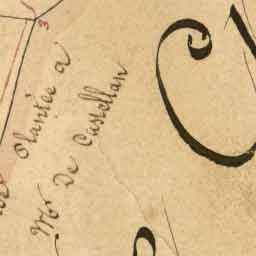 Plantée a
Mr De Castellan
C
3